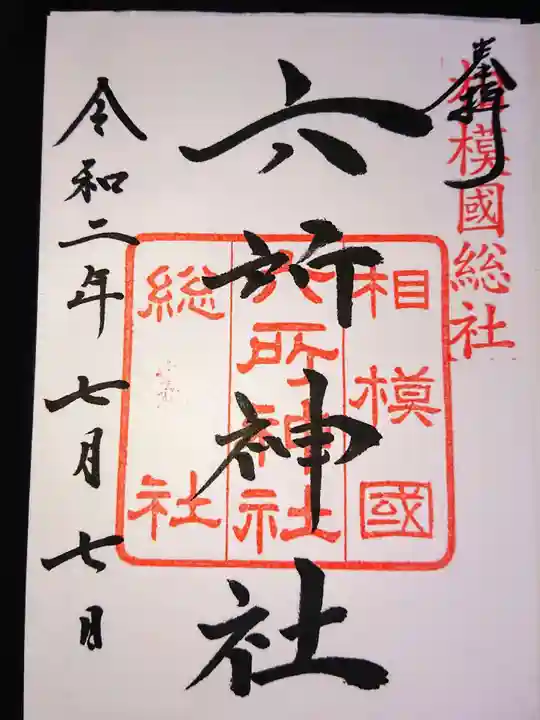 奉拝
相模國総社
六所神社
相模國
六所神社
総社
令和二年七月七日